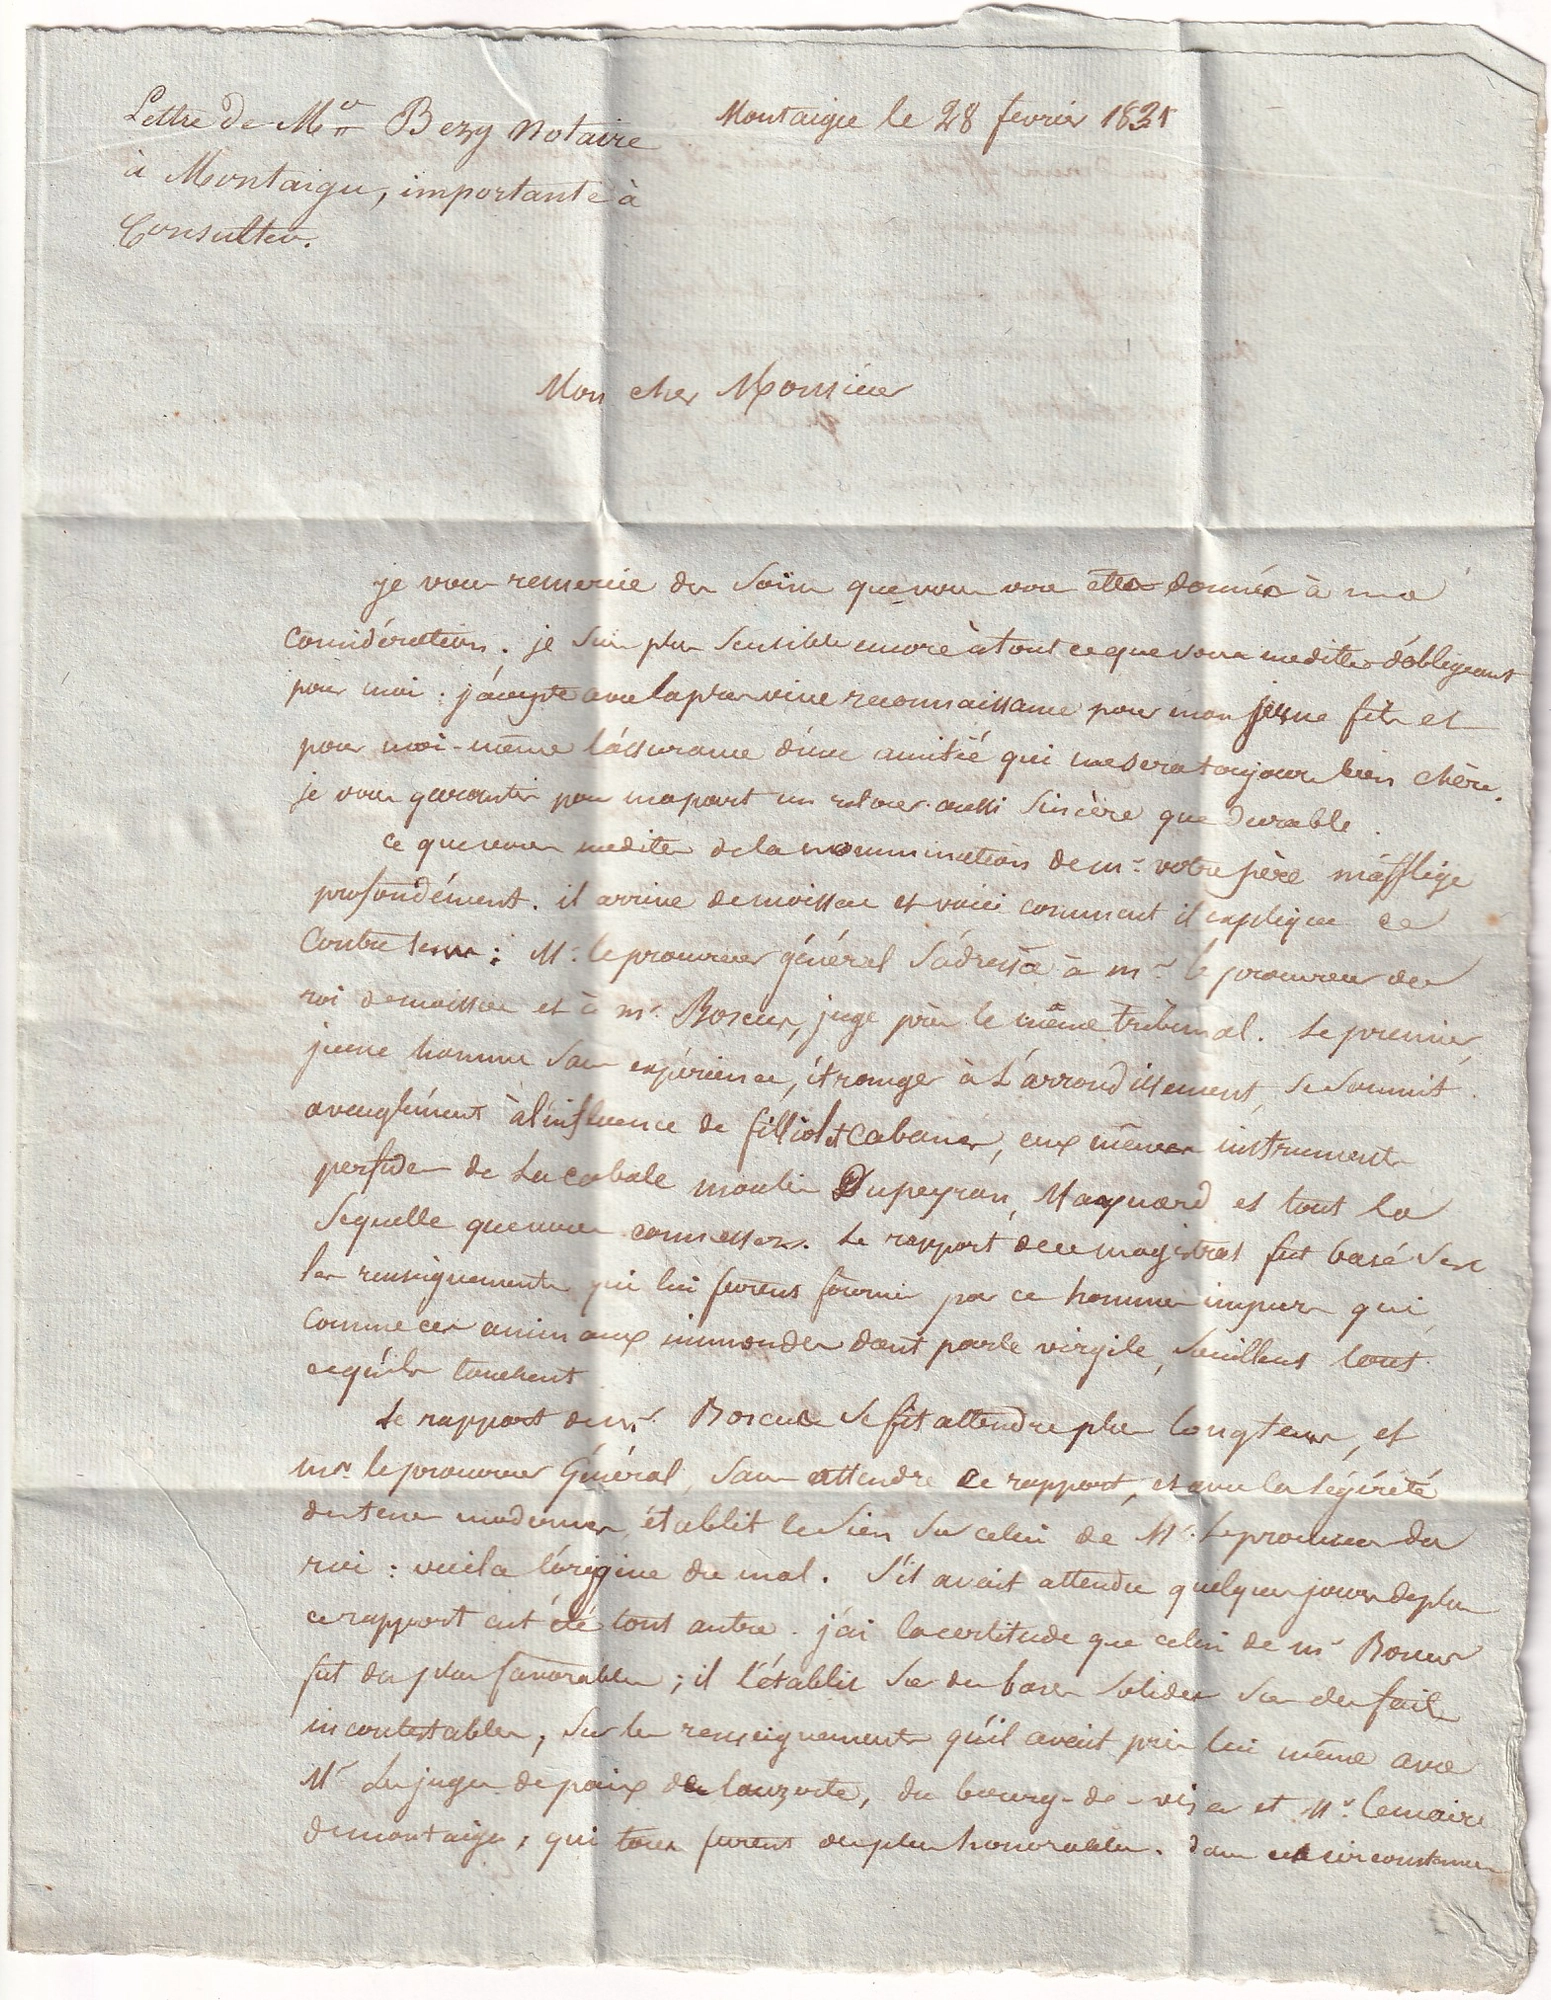 Lettre de Mr Bezy Notaire
à Montaigu, importante à
Consulter.
Montaigu le 28 fevrier 1831
Mon cher Monsieur
je vous remercie des soins que vous vous etes donnés à ma
considération. je suis plus sensible encore à tout ce que vous me dites d'obligeant
pour moi : j'accepte avec la plus vive reconnaissance pour mon jeune fils et
pour moi-même l'assurance d'une amitié qui me sera toujours bien chère.
je vous garantis pour ma part un retour aussi sincère que durable.
ce que vous me dites de la nommination de mr votre père m'afflige
profondément. il arrive de moissac et voici comment il explique ce
Contre tems : Mr le procureur général s'adressa à mr le procureur du
roi de moissac et à mr Boscus, juge près le même tribunal. Le premier,
jeune homme sans expérience, étranger à L'arrondissement, se soumit
aveuglément à l'influence de filliol et Cabanes, eux mêmes instruments
perfides de La cabale moulis Dupeyron, Maynard et tout la
sequelle que vous connessez. Le rapport de ce magistrat fut basé sur
les renseignements qui lui furent fournis par ces hommes impurs qui,
comme ces animaux immondes dont parle virgile, souillent tout
ce qu'ils touchent
Le rapport de mr Boscus se fit attendre plus longtems, et
mr le procureur Général, sans attendre ce rapport, et avec la légéreté
des tems modernes, établit le sien sur celui de Mr Le procureur du
roi : voila l'origine du mal. S'il avait attendu quelques jours de plus
ce rapport eut été tout autre. j'ai la certitude que celui de mr Boscus
fut des plus favorables ; il l'établit sur des bases solides sur des faits
incontestables, sur les renseignements qu'il avait pris lui même avec
Mr Les juges de paix de Lauzerte, du bourg-de-visa et Mr Lemaire
de montaigu, qui tous furent des plus honorables. dans ces circonstances